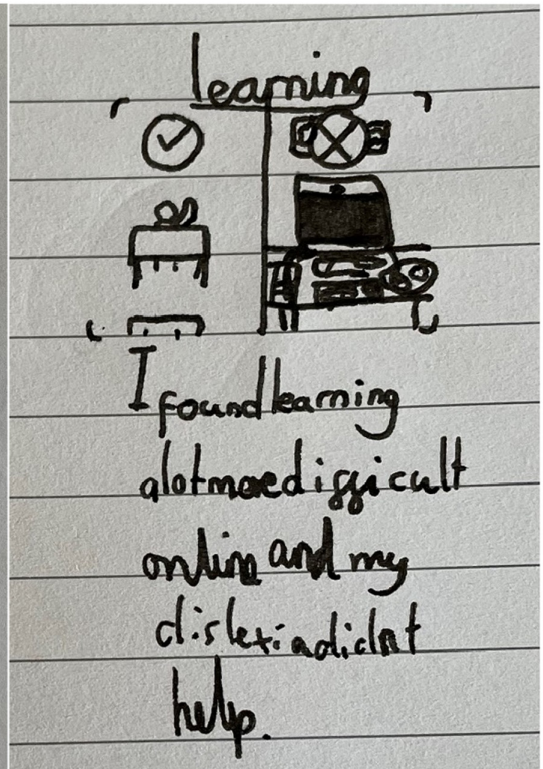 learning
I found learning
alot more difficult
online and my
dislexia didnt
help.